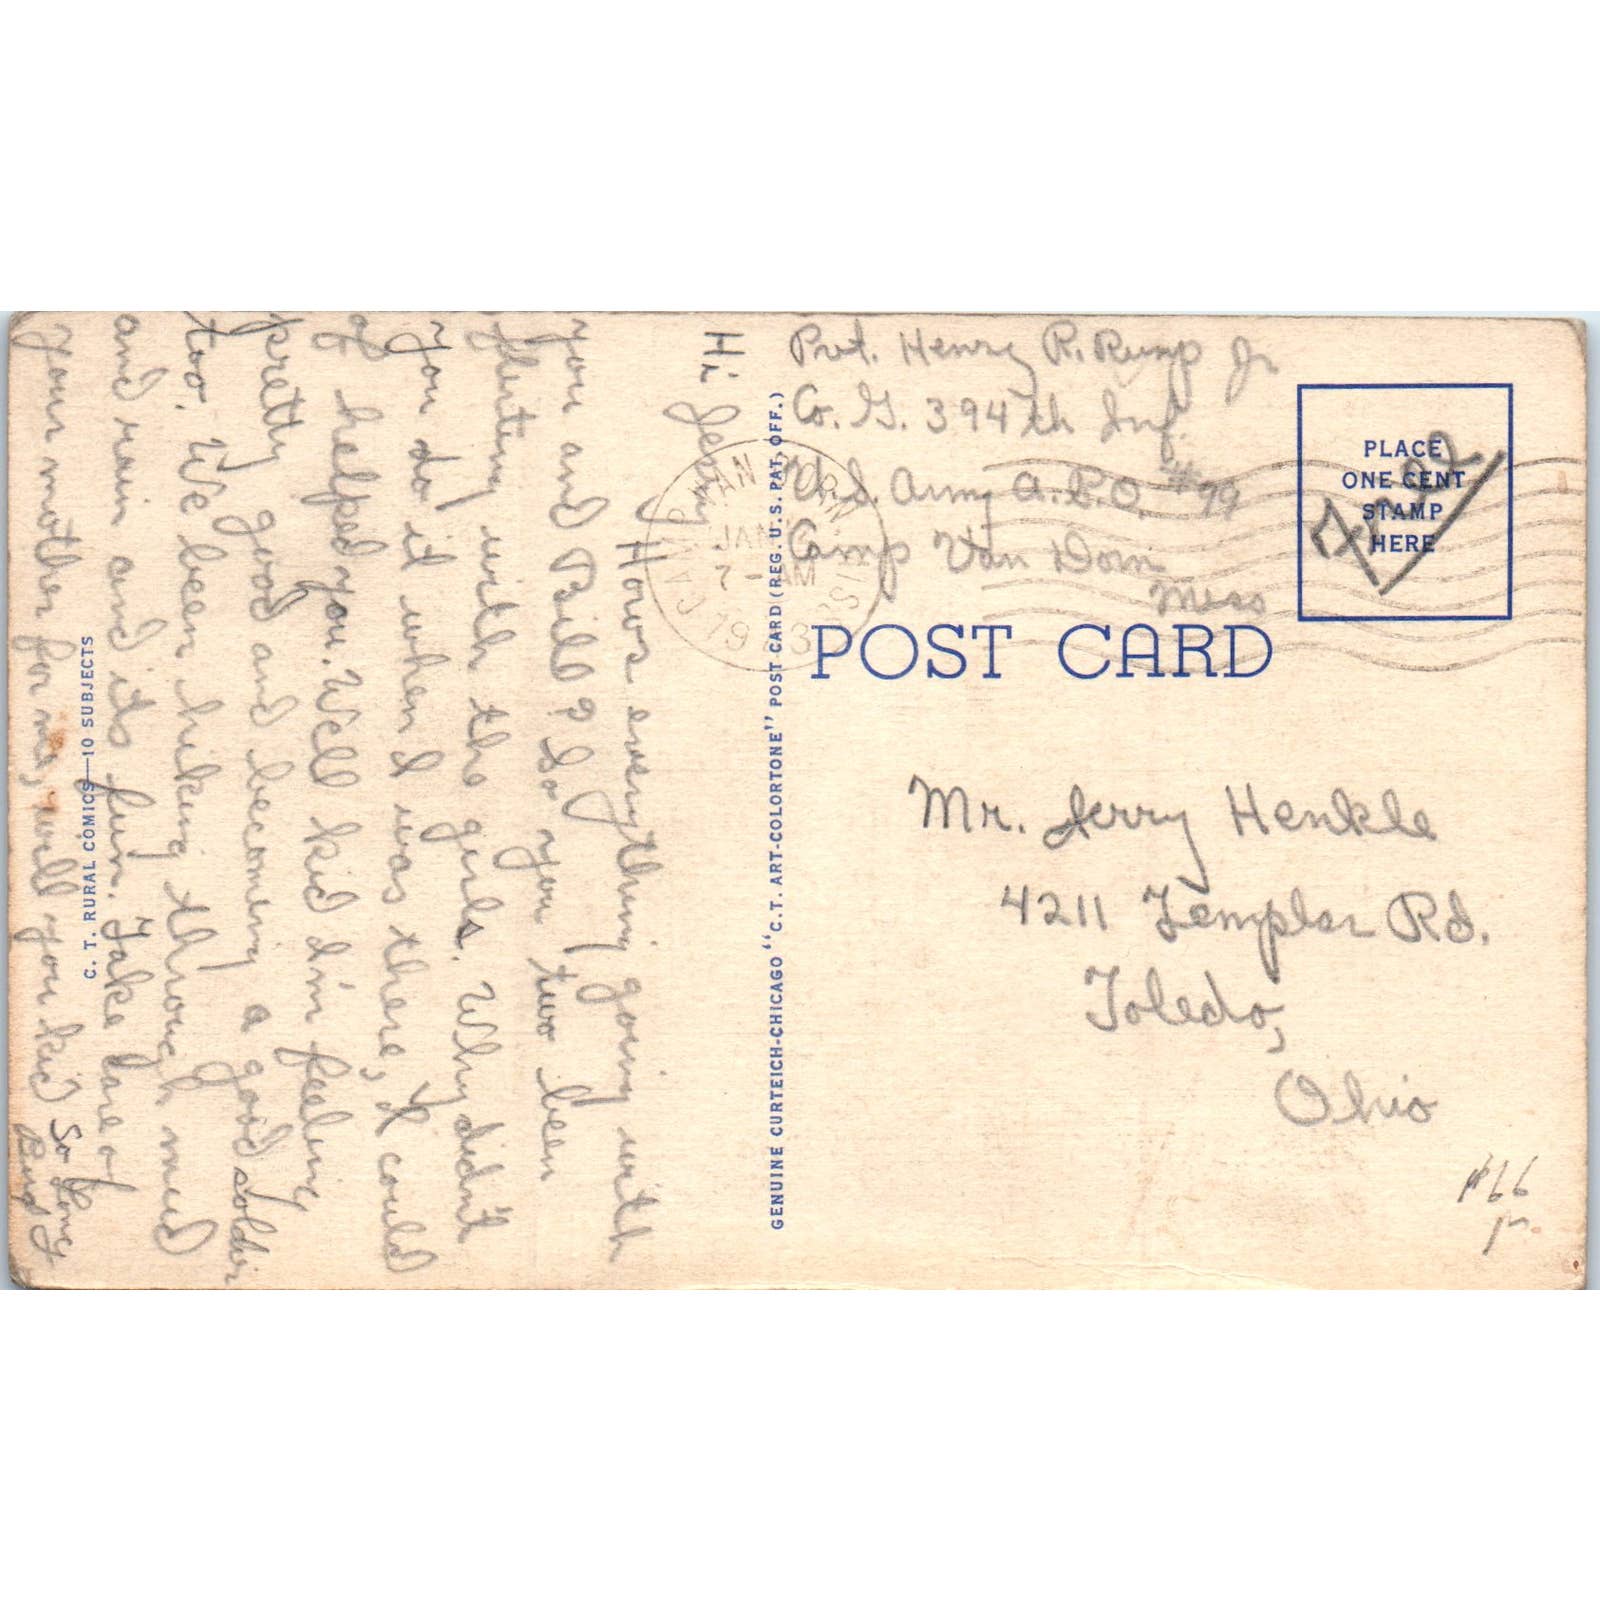 Pvt. Henry R. Rump Jr
Co. G. 394th Inf.
U.S. Army A.P.O. #99
Camp Van Dorn
Miss
PLACE
ONE CENT
STAMP
HERE
Free
CAMP VAN DORN
JAN
7-AM
MISS
POST CARD
Mr. Jerry Henkle
4211 Templar Rd.
Toledo,
Ohio
GENUINE CURTEICH-CHICAGO "C.T. ART-COLORTONE" POST CARD (REG. U.S. PAT. OFF.)
Hi Jerry
Hows everything going with
you and Bill? So you two been
flirting with the girls. Why didn't
you do it when I was there, I could
of helped you. Well kid I'm feeling
pretty good and becoming a good soldier
too. We been hiking through mud
and rain and its fun. Take care of
your mother for me, will you kid So Long
C. T. RURAL COMICS—10 SUBJECTS
$66